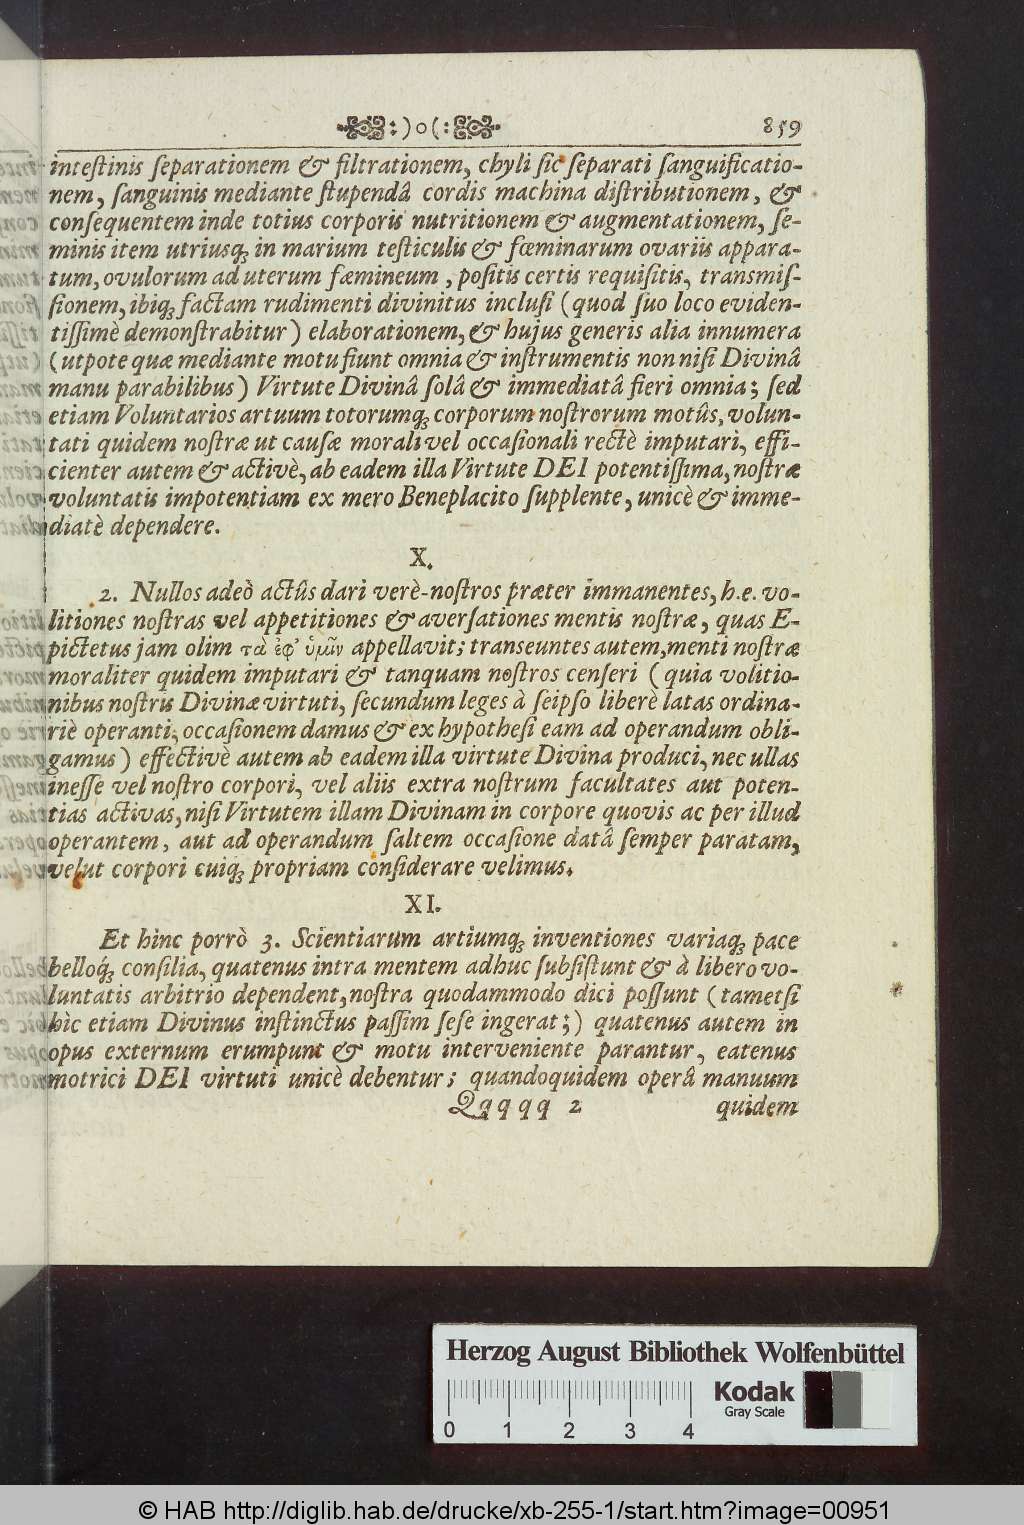 :)o(: 859
inteſtinis ſeparationem & filtrationem, chyli ſic ſeparati ſanguificatio-
nem, ſanguinis mediante ſtupendâ cordis machina diſtributionem, &
conſequentem inde totius corporis nutritionem & augmentationem, ſe-
minis item utriusq́; in marium teſticulis & fœminarum ovariis appara-
tum, ovulorum ad uterum fæmineum, poſitis certis requiſitis, transmiſ-
ſionem, ibiq́; factam rudimenti divinitus incluſi (quod ſuo loco eviden-
tiſſimè demonſtrabitur) elaborationem, & hujus generis alia innumera
(utpote quæ mediante motu fiunt omnia & inſtrumentis non niſi Divinâ
manu parabilibus) Virtute Divinâ ſolâ & immediatâ fieri omnia; ſed
etiam Voluntarios artuum totorumq́; corporum noſtrorum motûs, volun-
tati quidem noſtræ ut cauſæ morali vel occaſionali rectè imputari, effi-
cienter autem & activè, ab eadem illa Virtute DEI potentiſſima, noſtræ
voluntatis impotentiam ex mero Beneplacito ſupplente, unicè & imme-
diatè dependere.
X.
2. Nullos adeò actûs dari verè-noſtros præter immanentes, h.e. vo-
litiones noſtras vel appetitiones & averſationes mentis noſtræ, quas E-
pictetus jam olim τὰ ἐφ' ὑμῖν appellavit; transeuntes autem, menti noſtræ
moraliter quidem imputari & tanquam noſtros cenſeri (quia volitio-
nibus noſtris Divinæ virtuti, ſecundum leges à ſeipſo liberè latas ordina-
riè operanti, occaſionem damus & ex hypotheſi eam ad operandum obli-
gamus) effectivè autem ab eadem illa virtute Divina produci, nec ullas
ineſſe vel noſtro corpori, vel aliis extra noſtrum facultates aut poten-
tias activas, niſi Virtutem illam Divinam in corpore quovis ac per illud
operantem, aut ad operandum ſaltem occaſione datâ ſemper paratam,
velut corpori cuiq́; propriam conſiderare velimus.
XI.
Et hinc porrò 3. Scientiarum artiumq́; inventiones variaq́; pace
belloq́; conſilia, quatenus intra mentem adhuc ſubſiſtunt & à libero vo-
luntatis arbitrio dependent, noſtra quodammodo dici poſſunt (tametſi
hìc etiam Divinus inſtinctus paſſim ſeſe ingerat;) quatenus autem in
opus externum erumpunt & motu interveniente parantur, eatenus
motrici DEI virtuti unicè debentur; quandoquidem operâ manuum
Qqqqq 2 quidem
Herzog August Bibliothek Wolfenbüttel
Kodak
Gray Scale
0 1 2 3 4
© HAB http://diglib.hab.de/drucke/xb-255-1/start.htm?image=00951